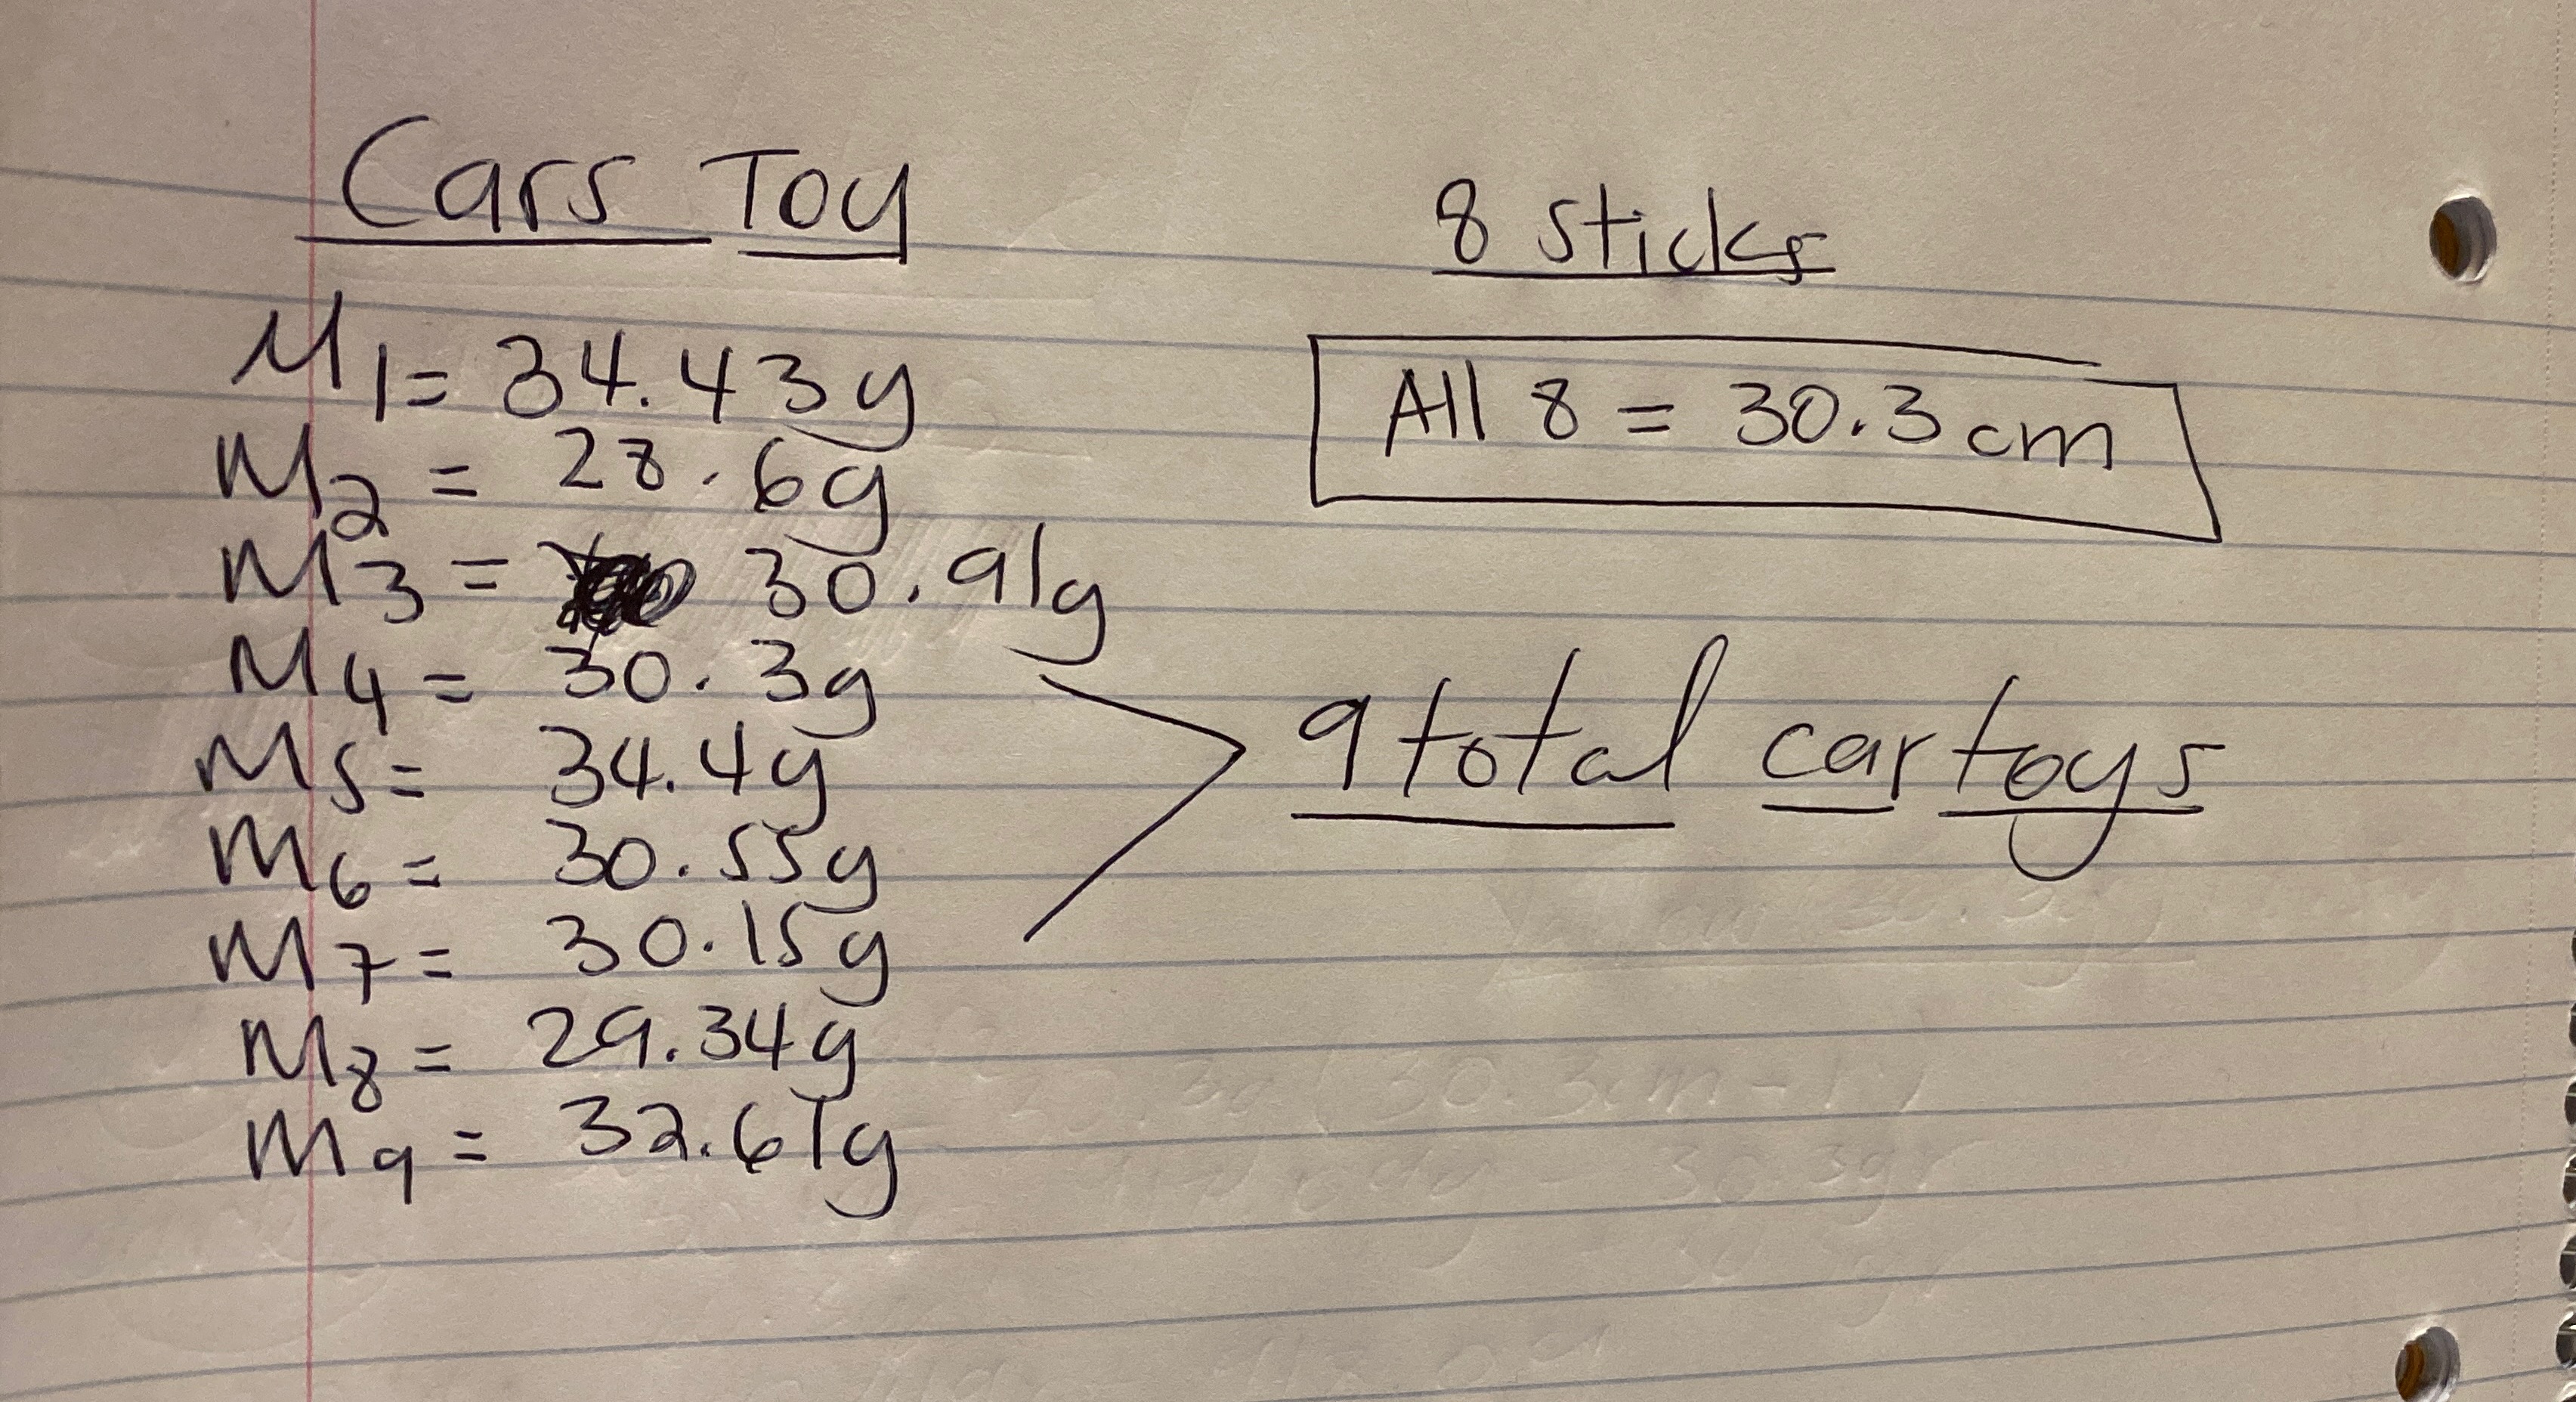 Cars Toy
M1= 34.43g
M2 = 28.6g
M3 = 30.91g
M4 = 30.3g
M5= 34.4g
M6= 30.55g
M7= 30.15g
M8= 29.34g
M9= 32.61g
8 sticks
All 8 = 30.3cm
9 total car toys